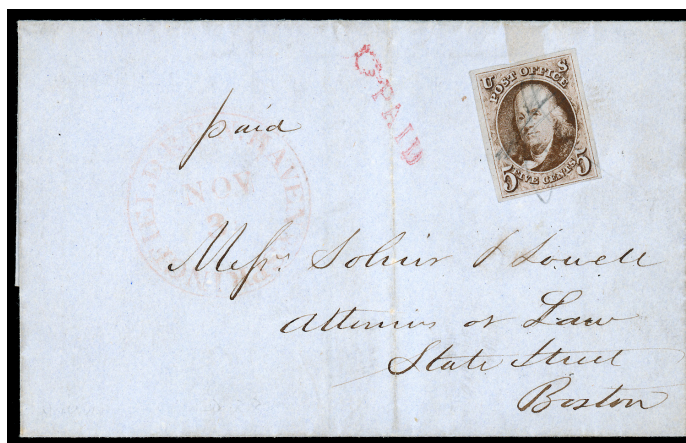 PAID
U S
POST OFFICE
5 FIVE CENTS 5
paid
NOV
Messrs. Sohier & Lowell
Attornies at Law
State Street
Boston